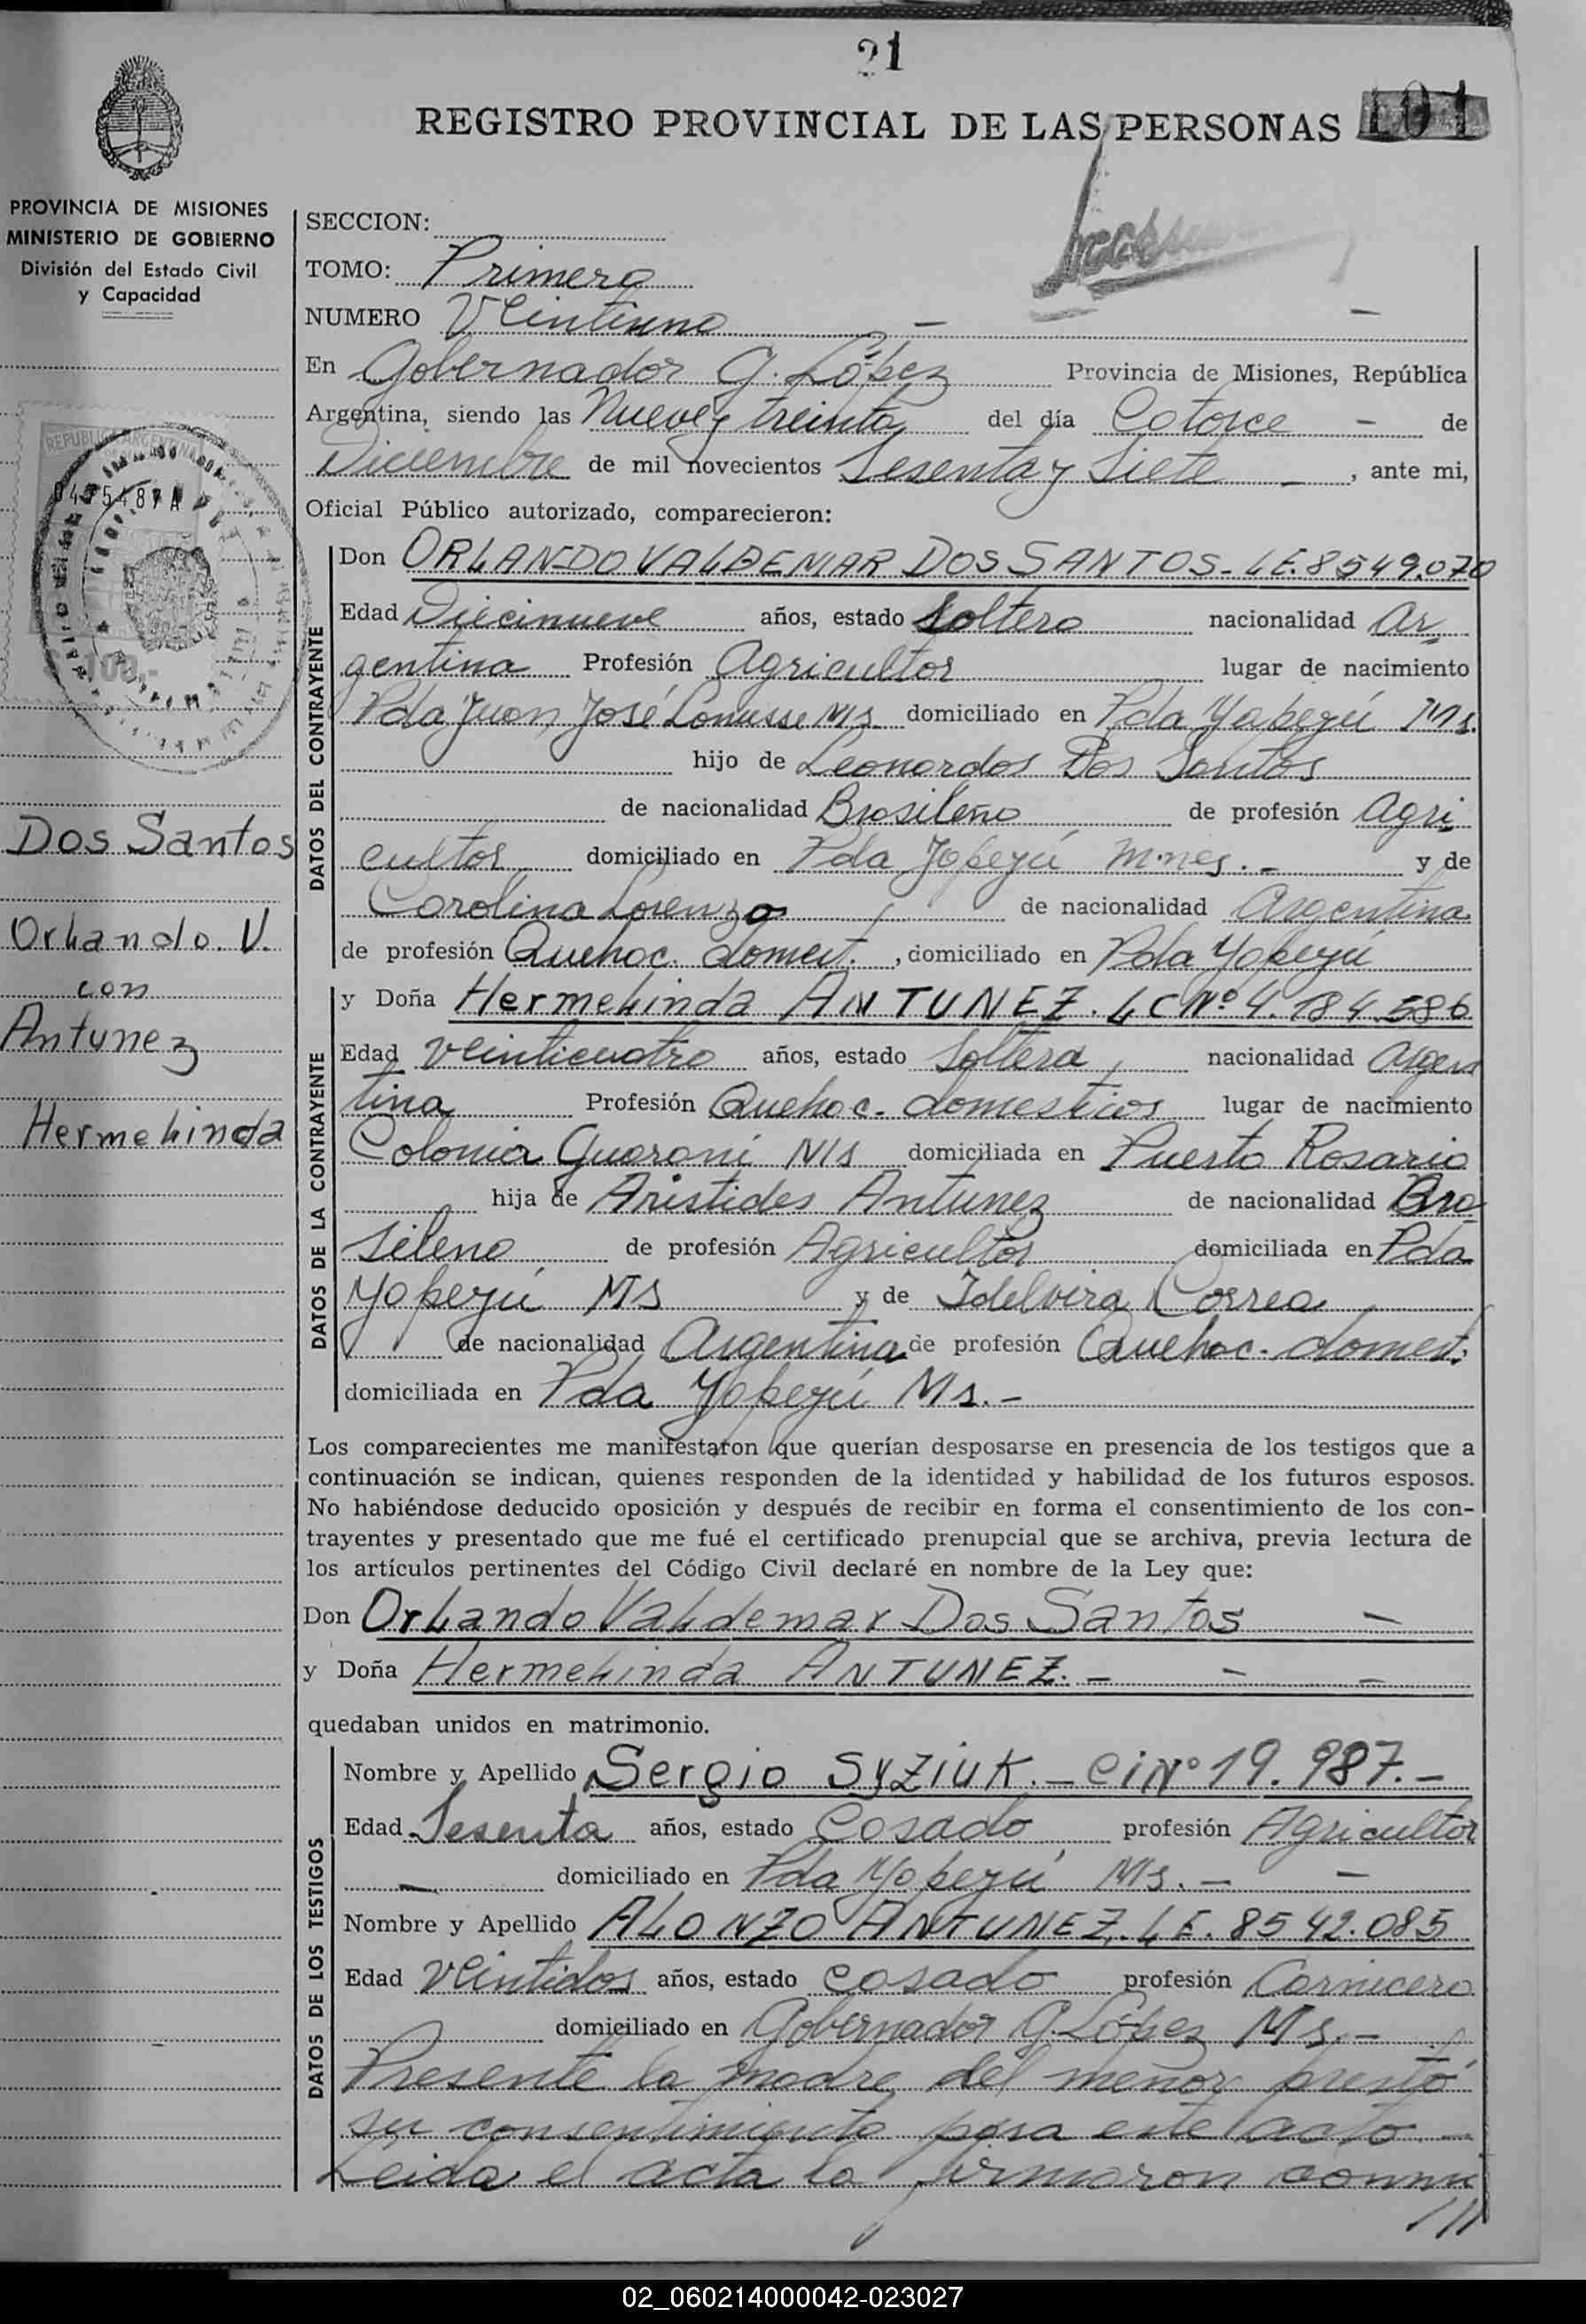 21
REGISTRO PROVINCIAL DE LAS PERSONAS 101
PROVINCIA DE MISIONES
MINISTERIO DE GOBIERNO
División del Estado Civil
y Capacidad
REPUBLICA ARGENTINA
100,-
Dos Santos
Orlando. V.
con
Antunez
Hermelinda
SECCION:
TOMO: Primero
NUMERO Veintiuno -
En Gobernador G. López Provincia de Misiones, República
Argentina, siendo las Nueve y treinta del día Catorce - de
Diciembre de mil novecientos Sesenta y Siete -, ante mi,
Oficial Público autorizado, comparecieron:
DATOS DEL CONTRAYENTE
Don ORLANDO VALDEMAR DOS SANTOS - LE. 8549.070
Edad Diecinueve años, estado Soltero nacionalidad Ar
gentina Profesión Agricultor lugar de nacimiento
Pda Juan José Lanusse Ms domiciliado en Pda Yapeyú Ms.
hijo de Leonardos Dos Santos
de nacionalidad Brasileño de profesión Agri
cultor domiciliado en Pda Yapeyú M.nes. - y de
Carolina Lorenzo de nacionalidad Argentina
de profesión Quehac. domest., domiciliado en Pda Yapeyú
DATOS DE LA CONTRAYENTE
y Doña Hermelinda ANTUNEZ. LC Nº 4.184.586
Edad veinticuatro años, estado Soltera nacionalidad Argen
tina Profesión Quehac. domesticos lugar de nacimiento
Colonia Guarani Ms domiciliada en Puerto Rosario
hija de Aristides Antunez de nacionalidad Bra
sileno de profesión Agricultor domiciliada en Pda
Yapeyú Ms y de Idelvira Correa
de nacionalidad Argentina de profesión Quehac. domest.
domiciliada en Pda Yapeyú Ms. -
Los comparecientes me manifestaron que querían desposarse en presencia de los testigos que a
continuación se indican, quienes responden de la identidad y habilidad de los futuros esposos.
No habiéndose deducido oposición y después de recibir en forma el consentimiento de los con-
trayentes y presentado que me fué el certificado prenupcial que se archiva, previa lectura de
los artículos pertinentes del Código Civil declaré en nombre de la Ley que:
Don Orlando Valdemar Dos Santos -
y Doña Hermelinda ANTUNEZ. - - -
quedaban unidos en matrimonio.
DATOS DE LOS TESTIGOS
Nombre y Apellido Sergio SyZiuK. - CiNº 19.987. -
Edad Sesenta años, estado Casado profesión Agricultor
- domiciliado en Pda Yapeyú Ms. - -
Nombre y Apellido ALONZO ANTUNEZ. LE. 8542.085
Edad veintidos años, estado casado profesión Carnicero
domiciliado en Gobernador G. López Ms. -
Presente la madre del menor prestó
su consentimiento para este acto. -
Leida el acta la firmaron conmi
///
02_060214000042-023027